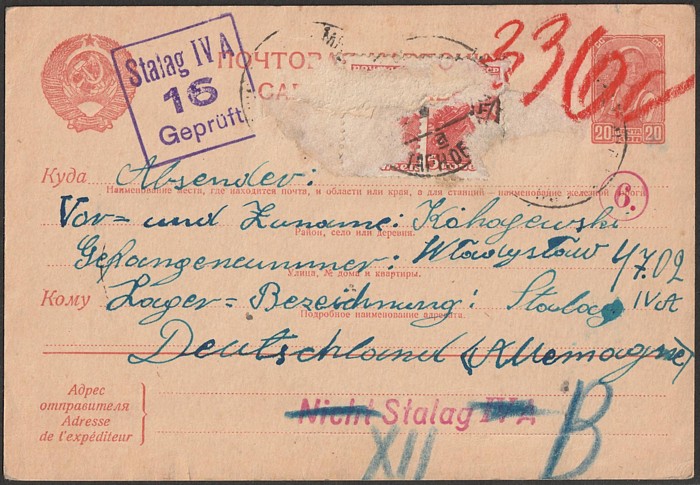 Stalag IV A
16
Geprüft
20 20
336
Куда Absender:
Наименование места, где находится почта, и области или края, а для станций — наименование железной дороги
6.
Vor= und Zuname: Kohagewski
Район, село или деревня.
Gefangenenummer: Władysław 4702
Улица, № дома и квартиры.
Кому Lager=Bezeichnung: Stalag IV A
Подробное наименование адресата.
Deutschland (Allemagne)
Адрес
отправителя
Adresse
de l'expéditeur
Nicht Stalag IV A
XII B